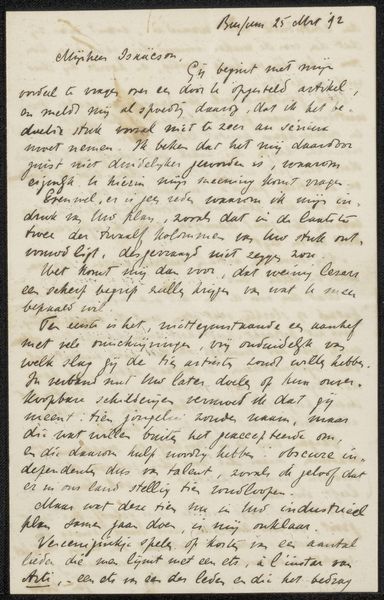 Bussum 25 Mrt '92
Mijnheer Isaäcson.
Gij begint met mijn
oordeel te vragen over een door U opgesteld artikel,
en meldt mij al spoedig daarop, dat ik het be-
doelde stuk vooral niet te zeer au sérieux
moet nemen. Ik beken dat het mij daardoor
juist niet duidelijker geworden is, waarom
eigenlijk U hierin mijn meening komt vragen.
Evenwel, er is geen reden waarom ik mijn in-
druk van Uw plan, zooals dat in de laatste
twee der twaalf kolommen van Uw stuk ont-
vouwd ligt, desgevraagd niet zeggen zou.
Het komt mij dan voor, dat weinig lezers
een scherp begrip zullen krijgen van wat U meer
bepaald wil.
Ten eerste is het, niettegenstaande een aanhef
met vele omschrijvingen, vrij onduidelijk van
welk slag gij de tien artiesten zoudt willen hebben.
In verband met Uw later doelen op hun onver-
koopbare schilderijen vermoed ik dat gij
meent: tien jongelui zonder naam, maar
die wat willen buiten het geaccepteerde om,
en die daarom hulp noodig hebben: obscure in-
dependents dus van talent, zooals ge gelooft dat
er in ons land stellig tien rondloopen.
Maar wat deze tien nu in Uw industrieel
plan samen gaan doen, is mij onklaar.
Vereenigingtje spelen op kosten van een aantal
lieden die men lijmt met een ets, à l'instar van
Arti, - een ets van een der leden en die het bedrag